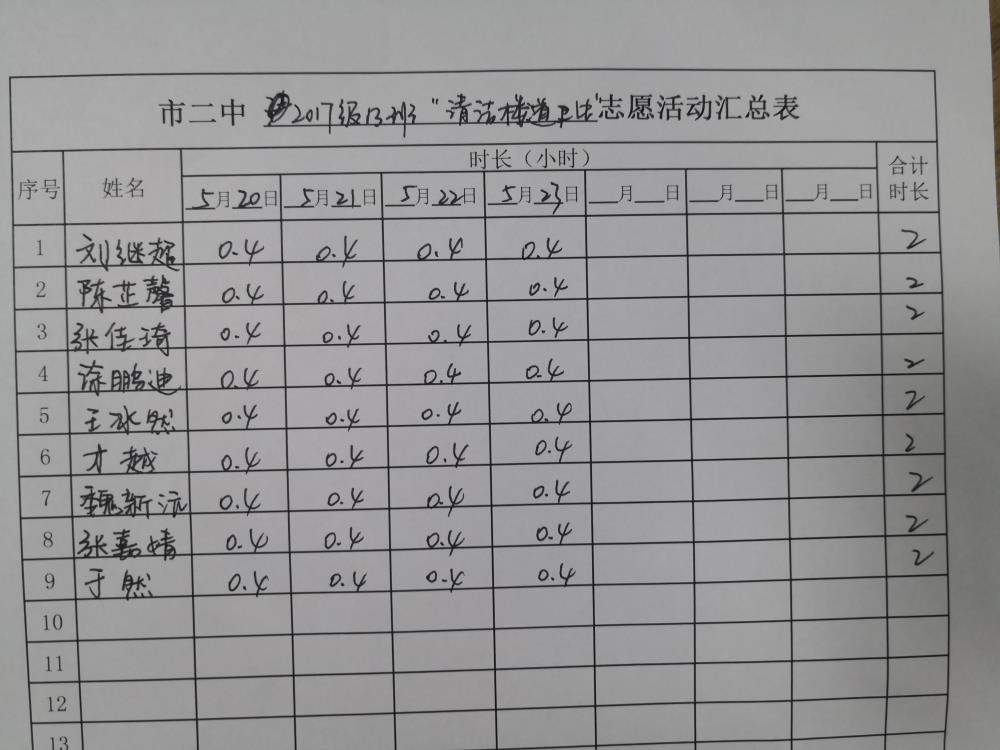 市二中 2017级13班"清洁楼道卫生"志愿活动汇总表
序号 姓名 时长（小时） 合计时长
5月20日 5月21日 5月22日 5月23日 __月__日 __月__日 __月__日
1 刘继超 0.4 0.4 0.4 0.4 2
2 陈芷馨 0.4 0.4 0.4 0.4 2
3 张佳琦 0.4 0.4 0.4 0.4 2
4 涂鹏迪 0.4 0.4 0.4 0.4 2
5 王冰然 0.4 0.4 0.4 0.4 2
6 才越 0.4 0.4 0.4 0.4 2
7 魏新沅 0.4 0.4 0.4 0.4 2
8 张嘉婧 0.4 0.4 0.4 0.4 2
9 于然 0.4 0.4 0.4 0.4 2
10
11
12
13